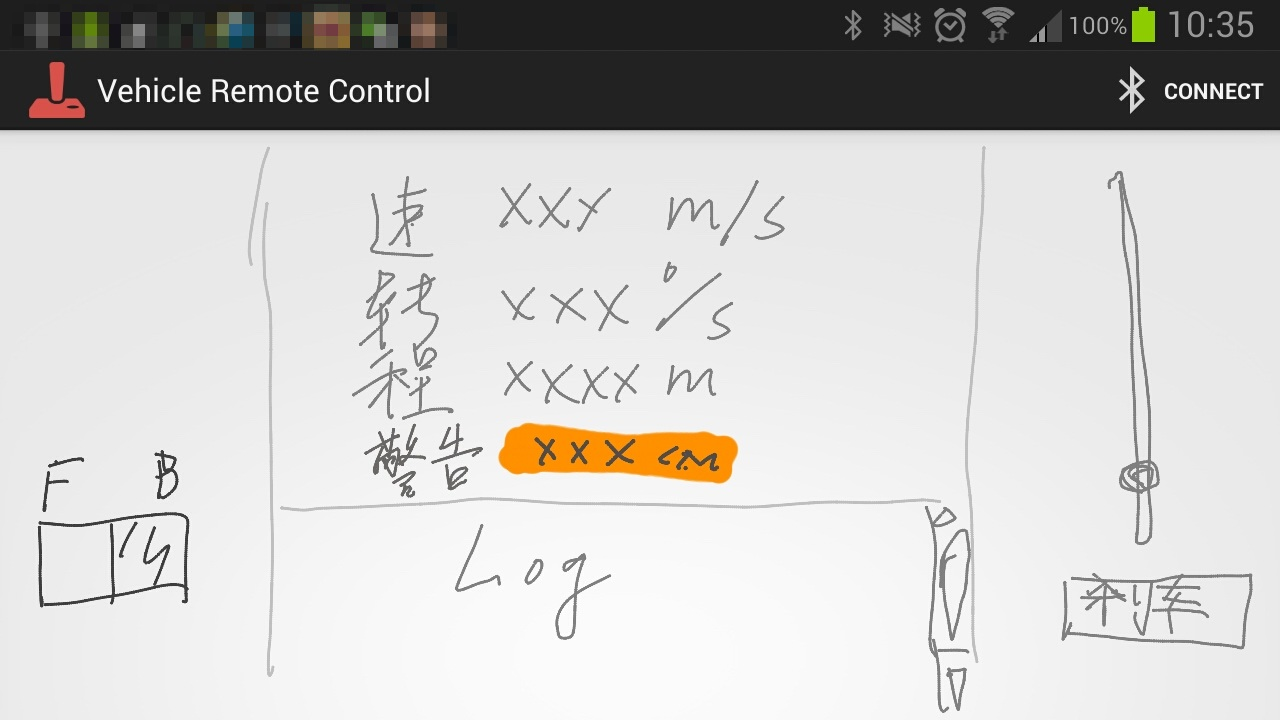 100% 10:35
Vehicle Remote Control CONNECT
速 XXX m/s
转 XXX °/s
程 XXXX m
警告 XXX cm
F B
Log
刹车